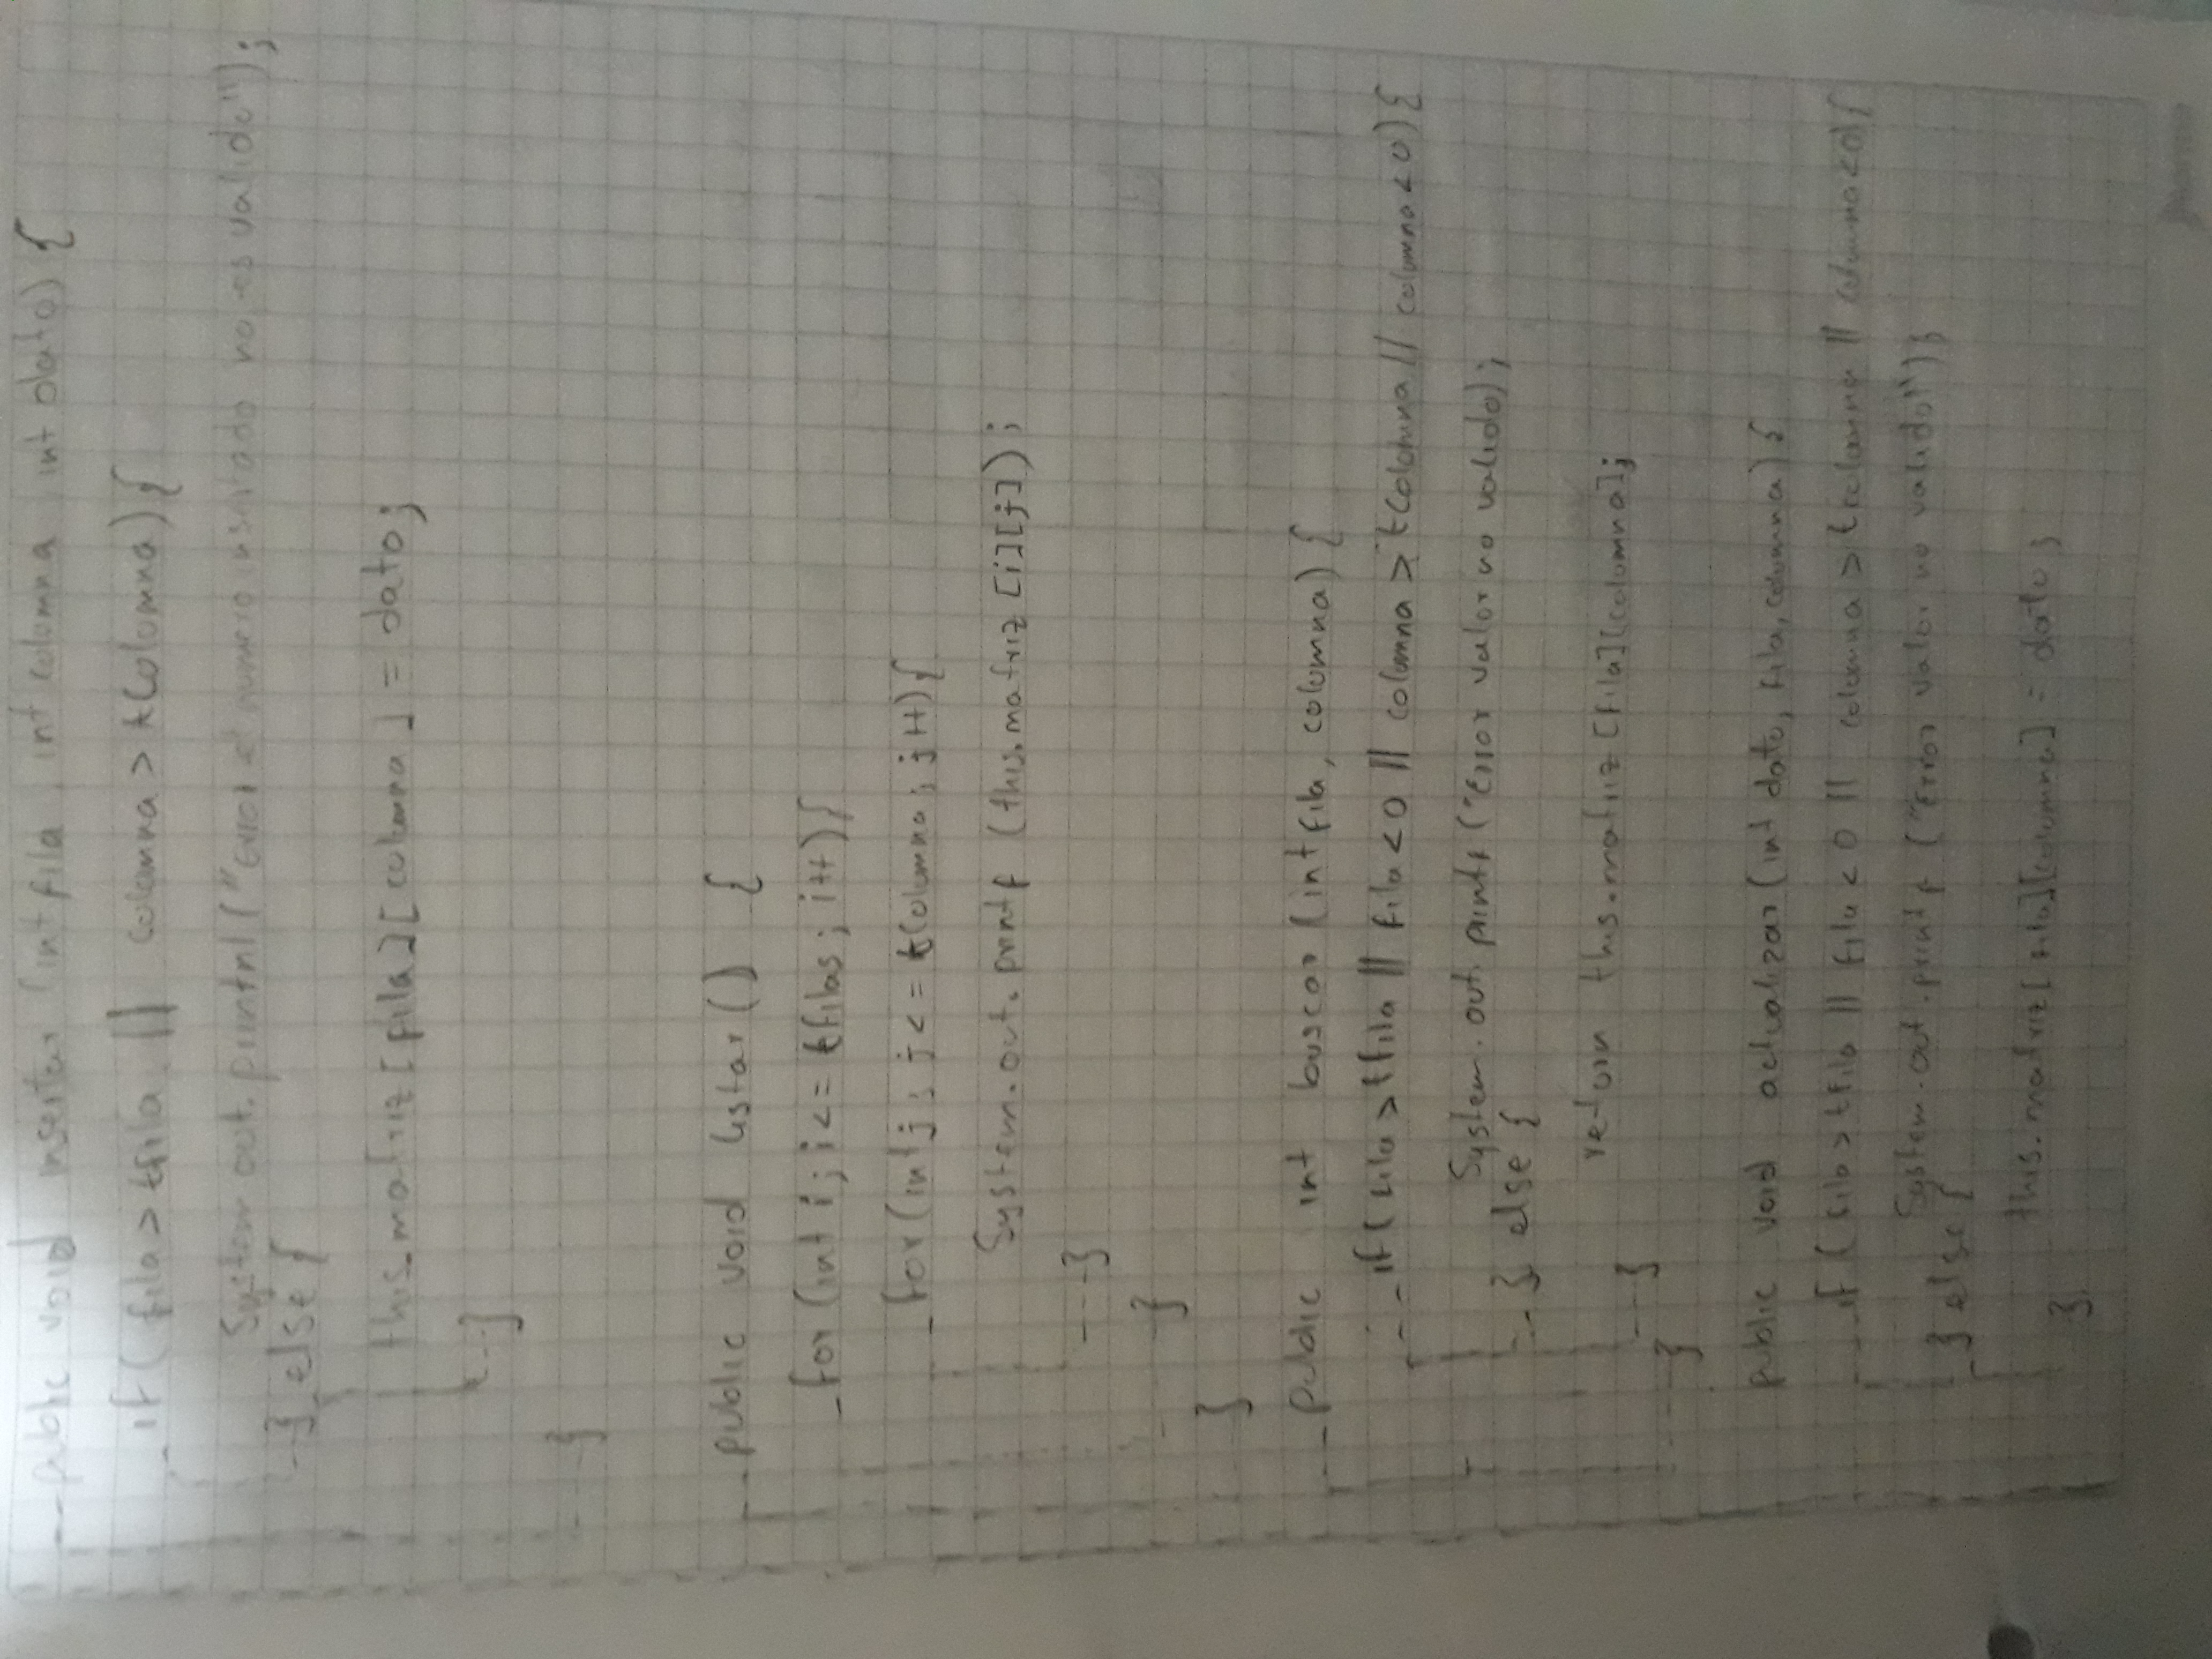 public void insertar (int fila, int columna int dato) {
if ( fila > tfila || columna > tColumna) {
System out. printnl ("Error el numero insertado no es valido");
} else {
this.matriz [fila] [columna] = dato;
}
}
public void listar () {
for (int i; i <= tfilas ; i++) {
for (int j ; j <= tColumna ; j++) {
System.out. printf (this.matriz [i][j]) ;
}
}
}
public int buscar (int fila, columna) {
if ( fila > tfila || fila < 0 || columna > tColumna || columna < 0) {
System. out. printf ("Error valor no valido) ;
} else {
return this.matriz [fila] [columna];
}
}
public void actualizar (int dato, fila, columna) {
if ( fila > tfila || fila < 0 || columna > tcolumna || columna < 0) {
System.out.printf ("Error valor no valido!") ;
} else {
this.matriz [fila] [columna] = dato ;
}